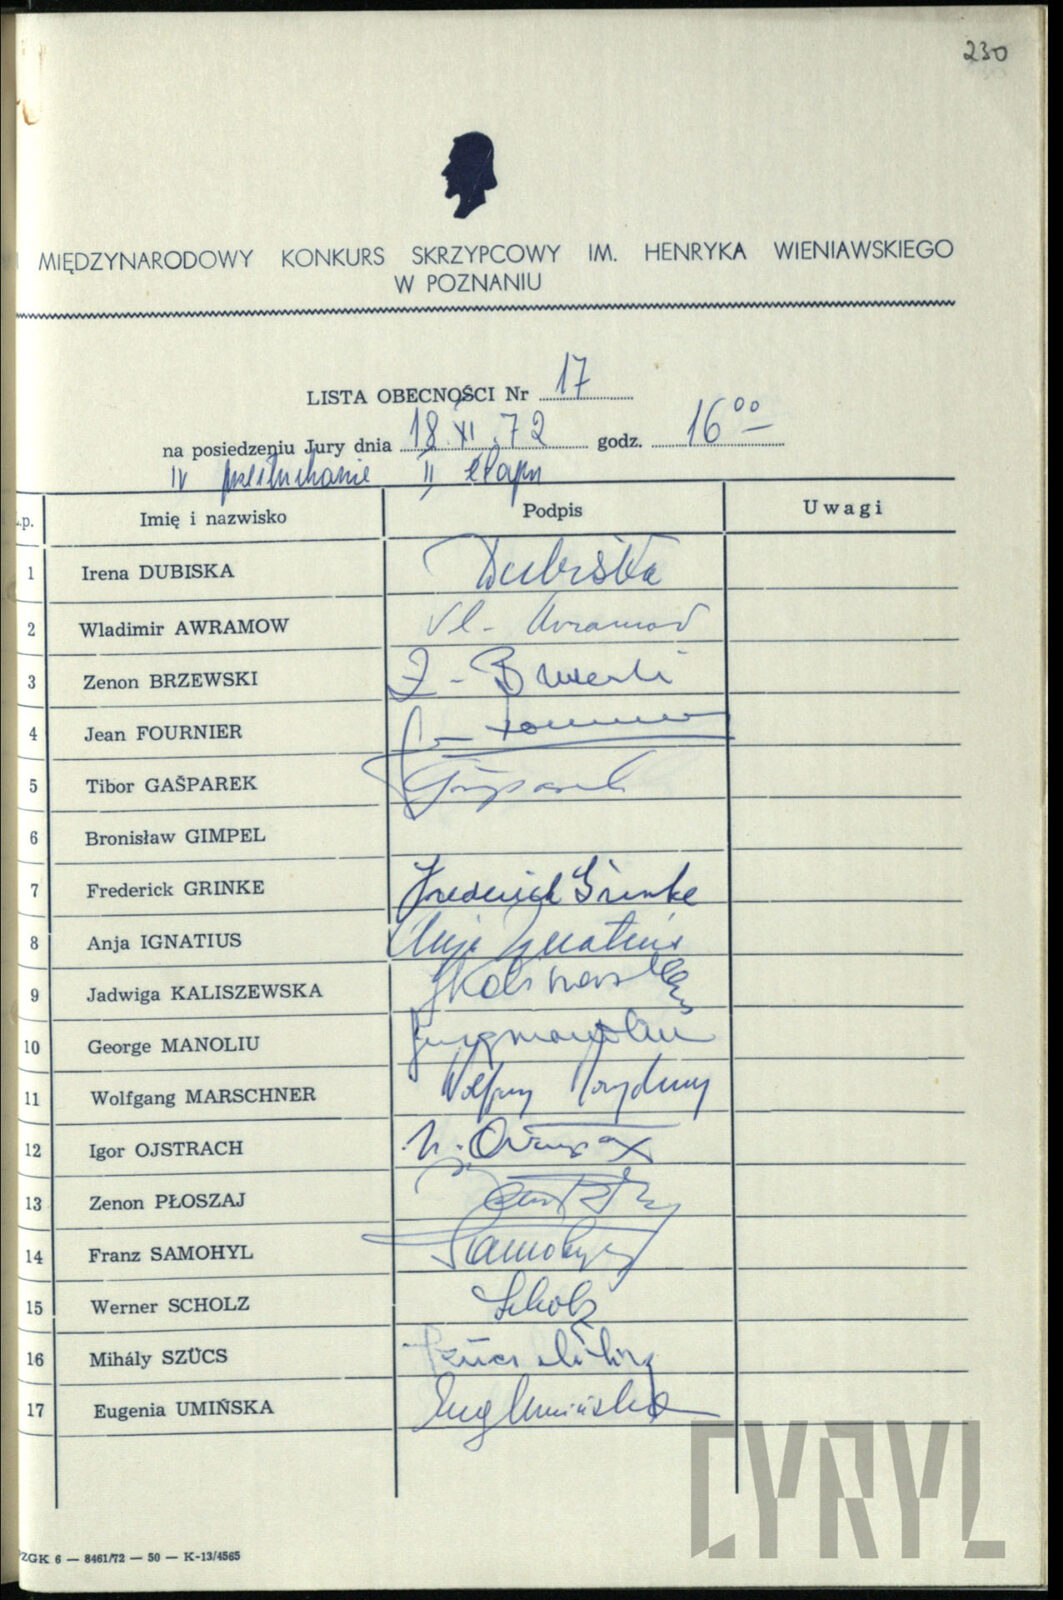 230
MIĘDZYNARODOWY KONKURS SKRZYPCOWY IM. HENRYKA WIENIAWSKIEGO
W POZNANIU
LISTA OBECNOŚCI Nr 17
na posiedzeniu Jury dnia 18.XI.72 godz. 16⁰⁰
IV przesłuchanie II etapu
L.p. Imię i nazwisko Podpis Uwagi
1 Irena DUBISKA Dubiska
2 Wladimir AWRAMOW Vl. Avramov
3 Zenon BRZEWSKI Z. Brzewski
4 Jean FOURNIER Fournier
5 Tibor GAŠPAREK Gašparek
6 Bronisław GIMPEL
7 Frederick GRINKE Frederick Grinke
8 Anja IGNATIUS Anja Ignatius
9 Jadwiga KALISZEWSKA JKaliszewska
10 George MANOLIU
11 Wolfgang MARSCHNER Wolfgang Marschner
12 Igor OJSTRACH
13 Zenon PŁOSZAJ
14 Franz SAMOHYL Samohyl
15 Werner SCHOLZ Scholz
16 Mihály SZÜCS Szücs Mihály
17 Eugenia UMIŃSKA Eug Umińska
ZGK 6 — 8461/72 — 50 — K-13/4565
CYRYL